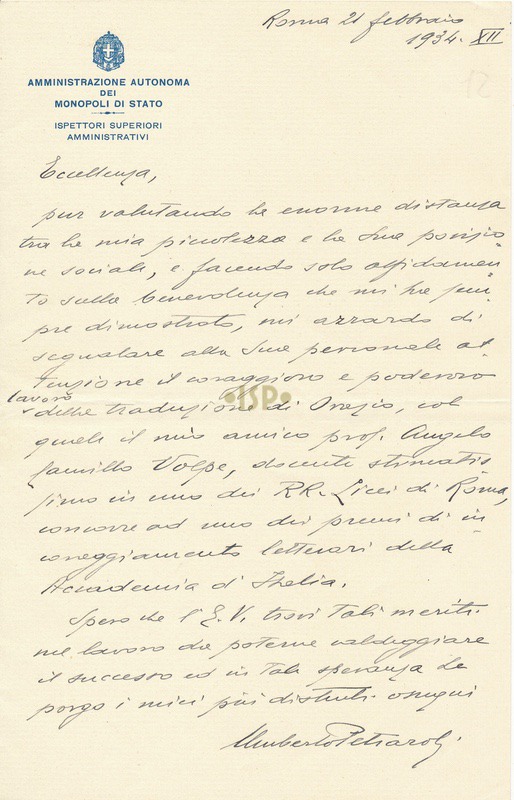 Roma 21 febbraio
1934. XII
12
AMMINISTRAZIONE AUTONOMA
DEI
MONOPOLI DI STATO
ISPETTORI SUPERIORI
AMMINISTRATIVI
Eccellenza,
pur valutando la enorme distanza
tra la mia piccolezza e la Sua posizio
ne sociale, e facendo solo affidamen
to sulla benevolenza che mi ha sem
pre dimostrato, mi azzardo di
segnalare alla Sua personale at
tenzione il coraggioso e poderoso
lavoro
della traduzione di Orazio, col
ISP
quale il mio amico prof. Angelo
Camillo Volpe, docente stimatis
simo in uno dei RR. Licei di Roma,
concorre ad uno dei premi di in
coraggiamento letterari della
Accademia d'Italia.
Spero che l'E.V. trovi tali meriti
nel lavoro da poterne caldeggiare
il successo ed in tale speranza Le
porgo i miei più distinti ossequi
Umberto Petraroli